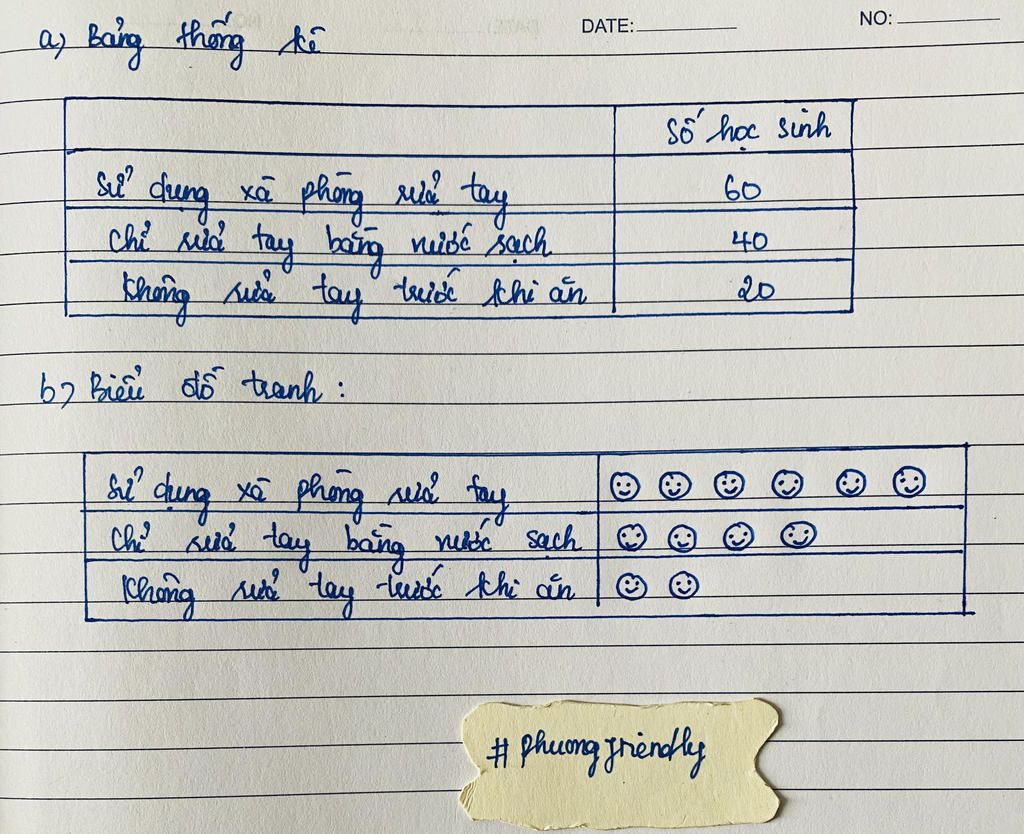 DATE:
NO:
a) Bảng thống kê
Số học sinh
Sử dụng xà phòng rửa tay 60
Chỉ rửa tay bằng nước sạch 40
Không rửa tay trước khi ăn 20
b) Biểu đồ tranh :
Sử dụng xà phòng rửa tay
Chỉ rửa tay bằng nước sạch
Không rửa tay trước khi ăn
# phuongfriendly